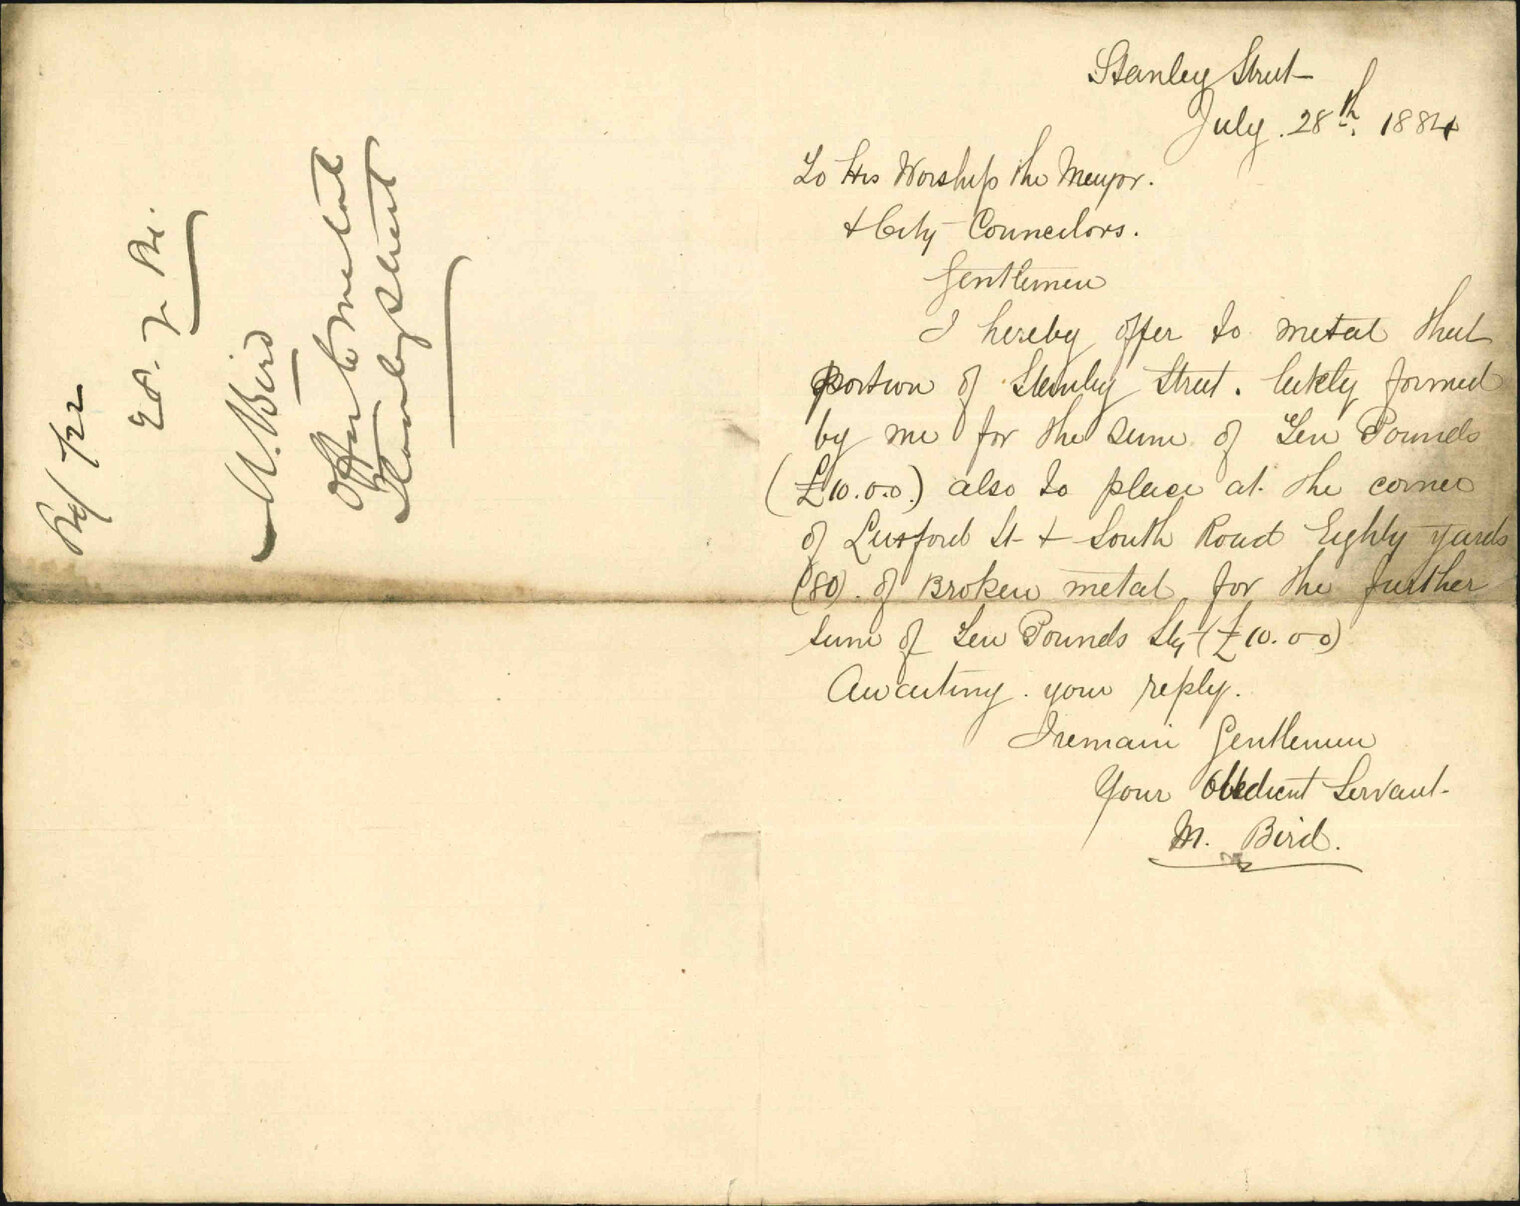 Stanley Street
July. 28th. 1884
To His Worship the Mayor.
& City Councilors.
Gentlemen
I hereby offer to metal that
portion of Stanley Street. lately formed
by me for the sum of Ten Pounds
(£10.0.0.) also to place at the corner
of Luxford St & South Road Eighty yards
(80). of Broken metal for the further
sum of Ten Pounds Stg (£10.0 0)
Awaiting your reply.
I remain Gentlemen
Your Obedient Servant
M. Bird.
7/22
M. Bird
Offer to metal
Stanley Street